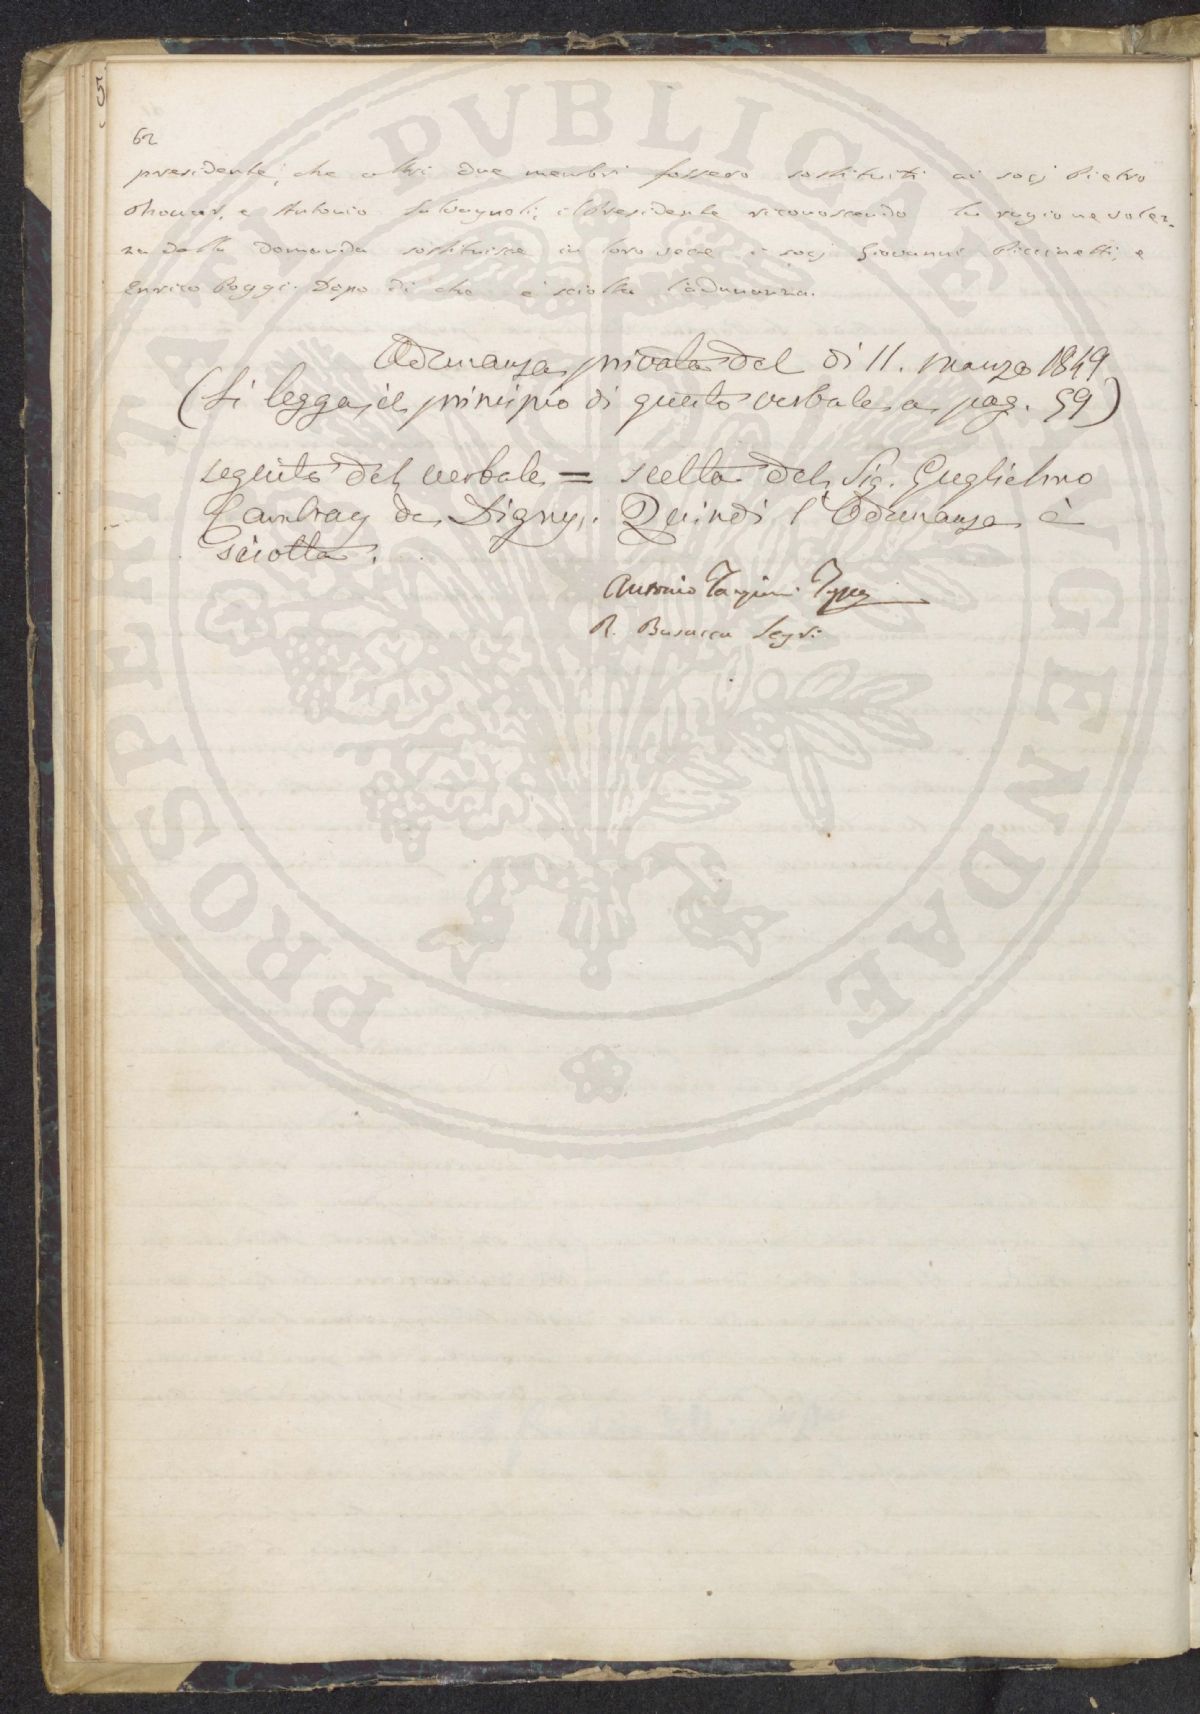 62
presidente, che altri due membri fossero sostituiti ai socj Pietro
Thouar, e Antonio Salvagnoli; il Presidente riconoscendo la ragionevolez-
za della domanda sostituisce in loro vece i socj Giovanni Piccinetti, e
Enrico Poggi. Dopo di che è sciolta l'adunanza.
Adunanza privata del dì 11. marzo 1849
(Si legga il principio di questo verbale a pag. 59)
seguito del verbale = scelta del Sig. Guglielmo
Cambray de Digny. Quindi l'Adunanza è
sciolta.
Antonio Targioni Tozzetti
R. Busacca Segr:
PROSPERITATI PVBLICAE AVGENDAE